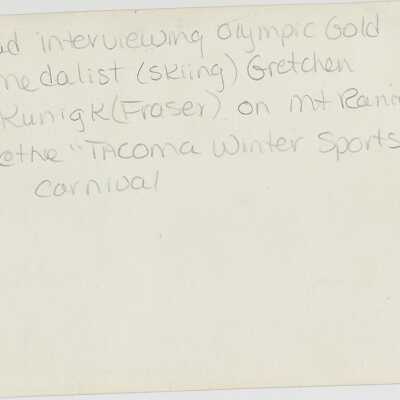 ud interviewing Olympic Gold
medalist (skiing) Gretchen
Kunigk (Fraser) on mt Raini
@the "Tacoma Winter Sports
Carnival